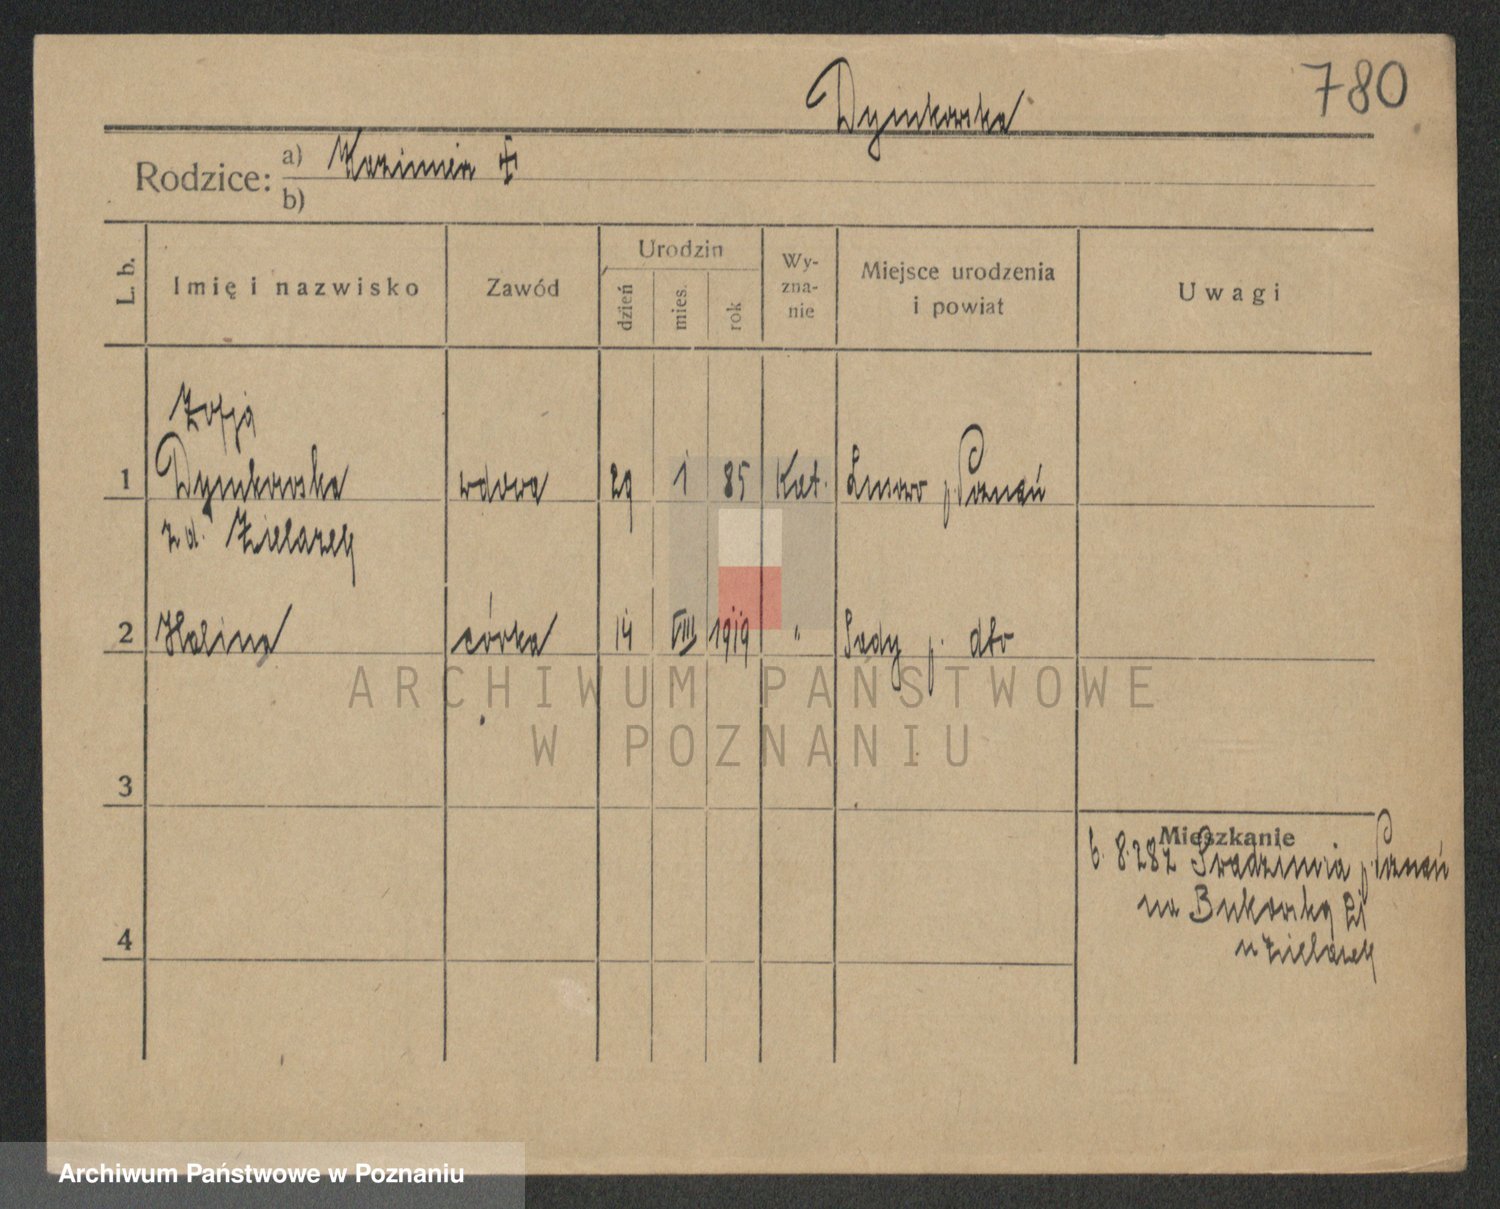 780
Dymkowska
Rodzice: a) Kazimierz ✝
b)
L. b.
Imię i nazwisko
Zawód
Urodzin
dzień
mies.
rok
Wy-
zna-
nie
Miejsce urodzenia
i powiat
Uwagi
Zofja
1 Dymkowska wdowa 29 1 85 Kat. p. Poznań
z d. Zielazek
2 Halina córka 14 VIII 1919 " Sady p. dto
3
4
Mieszkanie
6. 8. 28 z p. Poznań
na Bukowską 21
u Zielazek
ARCHIWUM PAŃSTWOWE
W POZNANIU
Archiwum Państwowe w Poznaniu